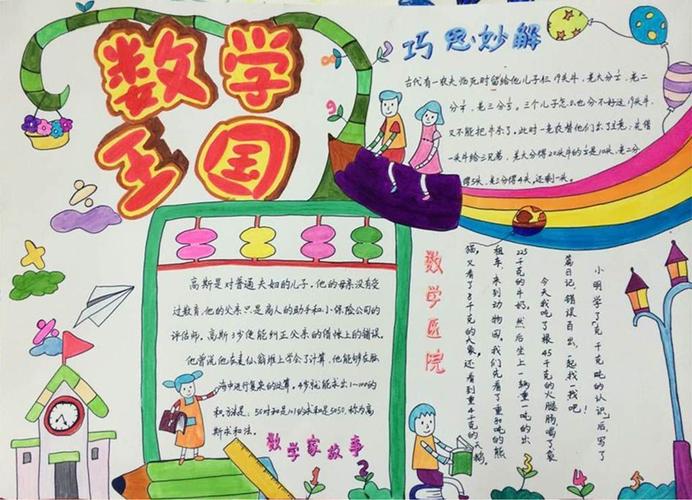 数学
王国
巧思妙解
古代有一农夫临死时留给他儿子仨19头牛,老大分½,老二
分¼,老三分⅕。三个儿子怎么也分不好这19头牛,
又不能把牛杀了。此时一老农替他们出了主意:先借
一头牛给三兄弟,老大分得20头牛的½是10头,老二分
得5头,老三分得4头,还剩一头。
高斯是对普通夫妇的儿子。他的母亲没有受
过教育。他的父亲只是商人的助手和小保险公司的
评估师。高斯3岁便能纠正父亲的借帐上的错误。
他曾说他在麦仙翁班上学会了计算,他能够在脑
海中进行复杂的运算。9岁就能求出1~100的
和,方法是:50对和是101的求和是5050,称为高
斯求和法。
数学家故事
数学医院
小明学了“克 千克 吨的认识”后,写了
篇日记,错误百出,一起找一找吧!
今天我吃了根45千克的火腿肠,喝了袋
225千克的牛奶。然后坐上一辆重一吨的出
租车,来到动物园。我们先看了重和吨的熊
猫,又看了3千克的大象,还看到重4千克的天鹅。
8
9
1
2
3
4
5